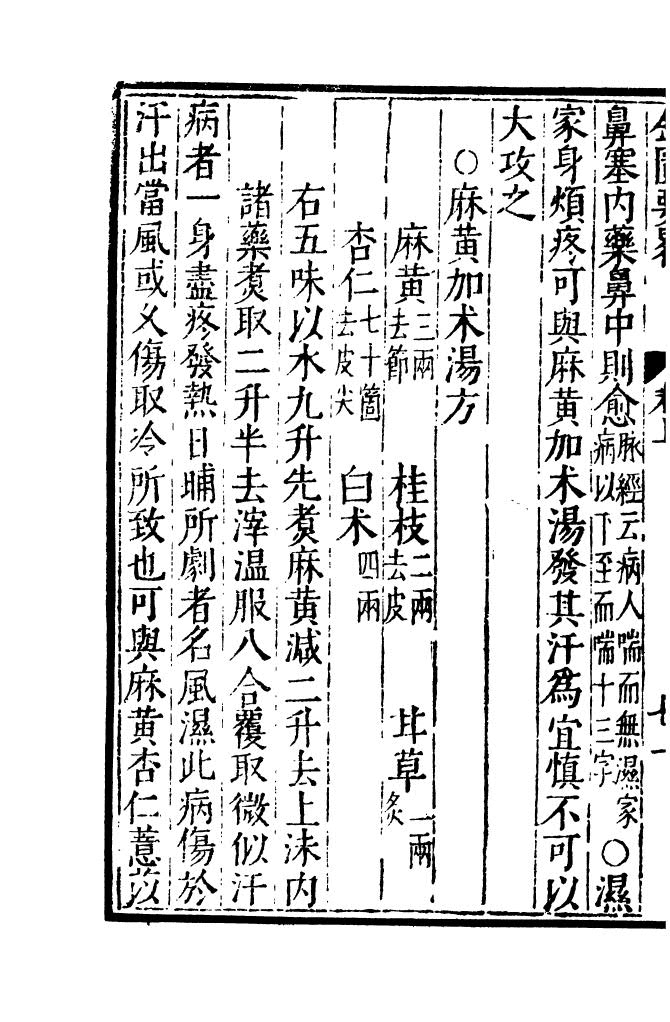 鼻塞内藥鼻中則愈脉經云病人喘而無濕家病以下至而喘十三字○濕
家身煩疼可與麻黄加术湯發其汗爲宜慎不可以
大攻之
○麻黄加术湯方
麻黄三兩去節　桂枝二兩去皮　甘草一兩炙
杏仁七十箇去皮尖　白术四兩
右五味以水九升先煑麻黄減二升去上沬内
諸藥煑取二升半去滓温服八合覆取微似汗
病者一身盡疼發熱日晡所劇者名風濕此病傷於
汗出當風或久傷取冷所致也可與麻黄杏仁薏苡